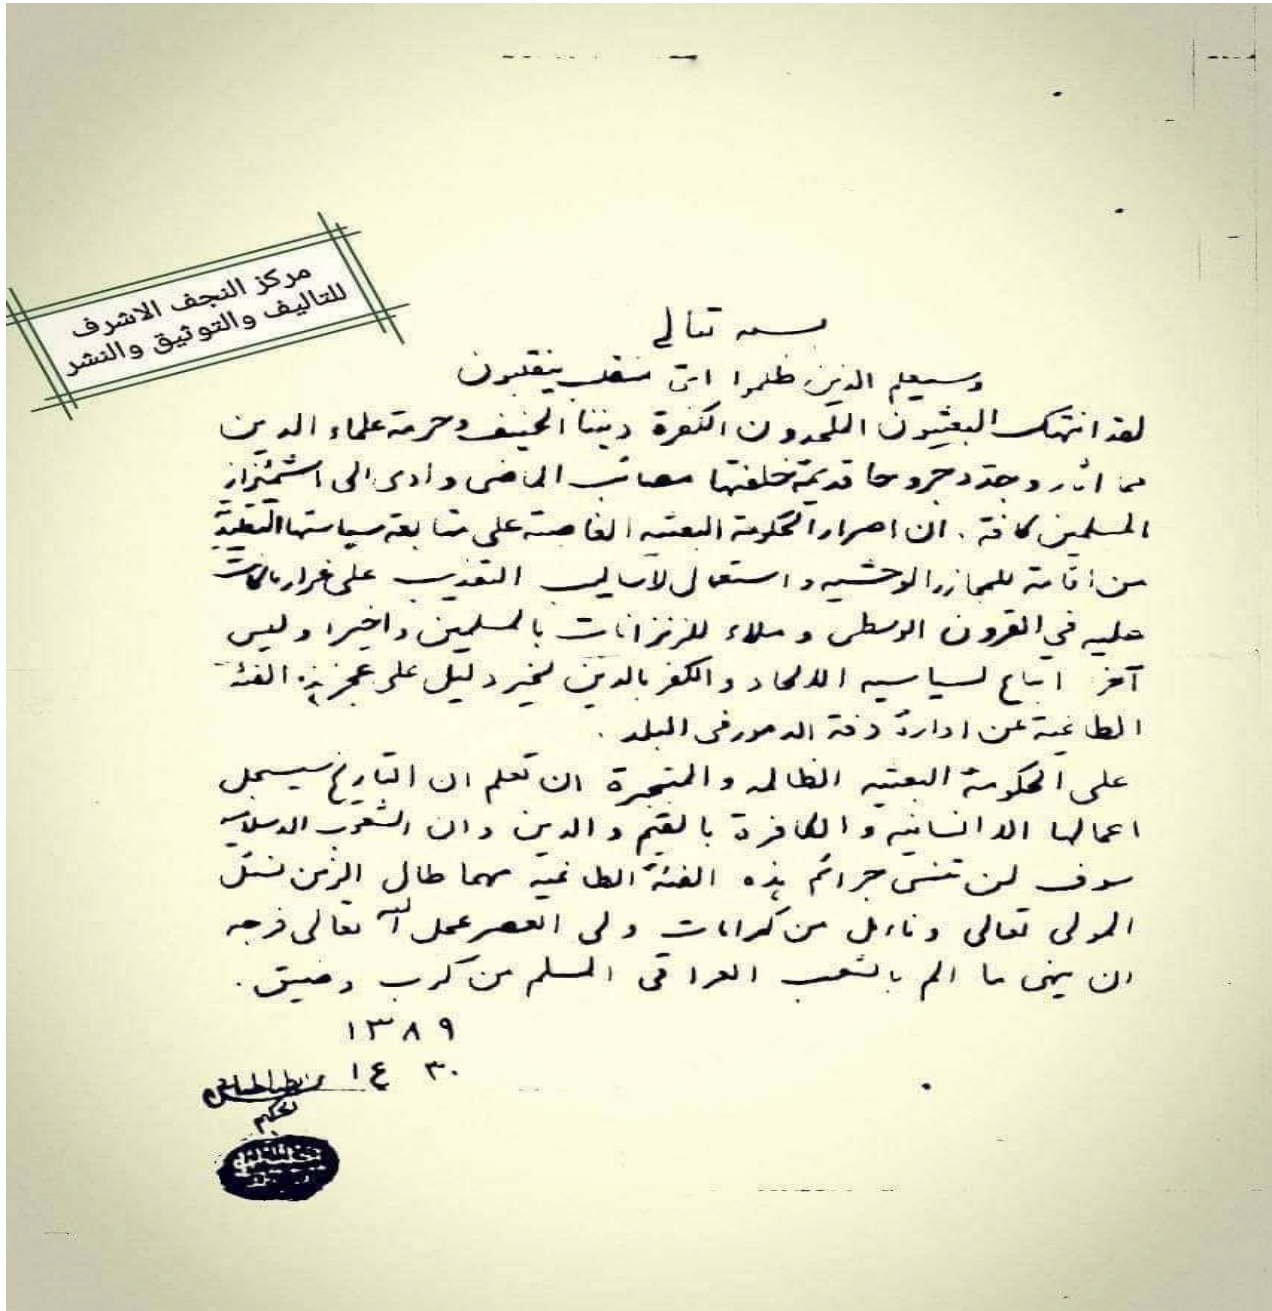 مركز النجف الاشرف
للتاليف والتوثيق والنشر
بسمه تعالى
وسيعلم الذين ظلموا اي منقلب ينقلبون
لقد انتهك البعثيون الملحدون الكفرة ديننا الحنيف وحرمة علماء الدين
مما اثار وجدد جروحا قديمة خلفتها مصائب الماضي وادى الى اشمئزاز
المسلمين كافة . ان اصرار الحكومة البعثيه الغاصبة على متابعة سياستها
من اقامة للمجازر الوحشيه واستعمال لاساليب التعذيب على غرار ما كانت
عليه في القرون الوسطى وملاء للزنزانات بالمسلمين واخيرا وليس
آخر اتباع لسياسيه الالحاد والكفر بالدين لخير دليل على عجز هذه الفئة
الطاغية عن ادارة دفة الامور في البلد .
على الحكومة البعثيه الظالمه والمتجبرة ان تعلم ان التاريخ سيسجل
اعمالها اللاانسانيه والكافرة بالقيم والدين وان الشعوب الاسلاميه
سوف لن تنسى جرائم هذه الفئة الطاغيه مهما طال الزمن نسئل
المولى تعالى ونامل من كرامات ولي العصر عجل الله تعالى فرجه
ان ينهى ما الم بالشعب العراقي المسلم من كرب وضيق .
١٣٨٩
٣٠ ع ١
الطباطبائي
الحكيم